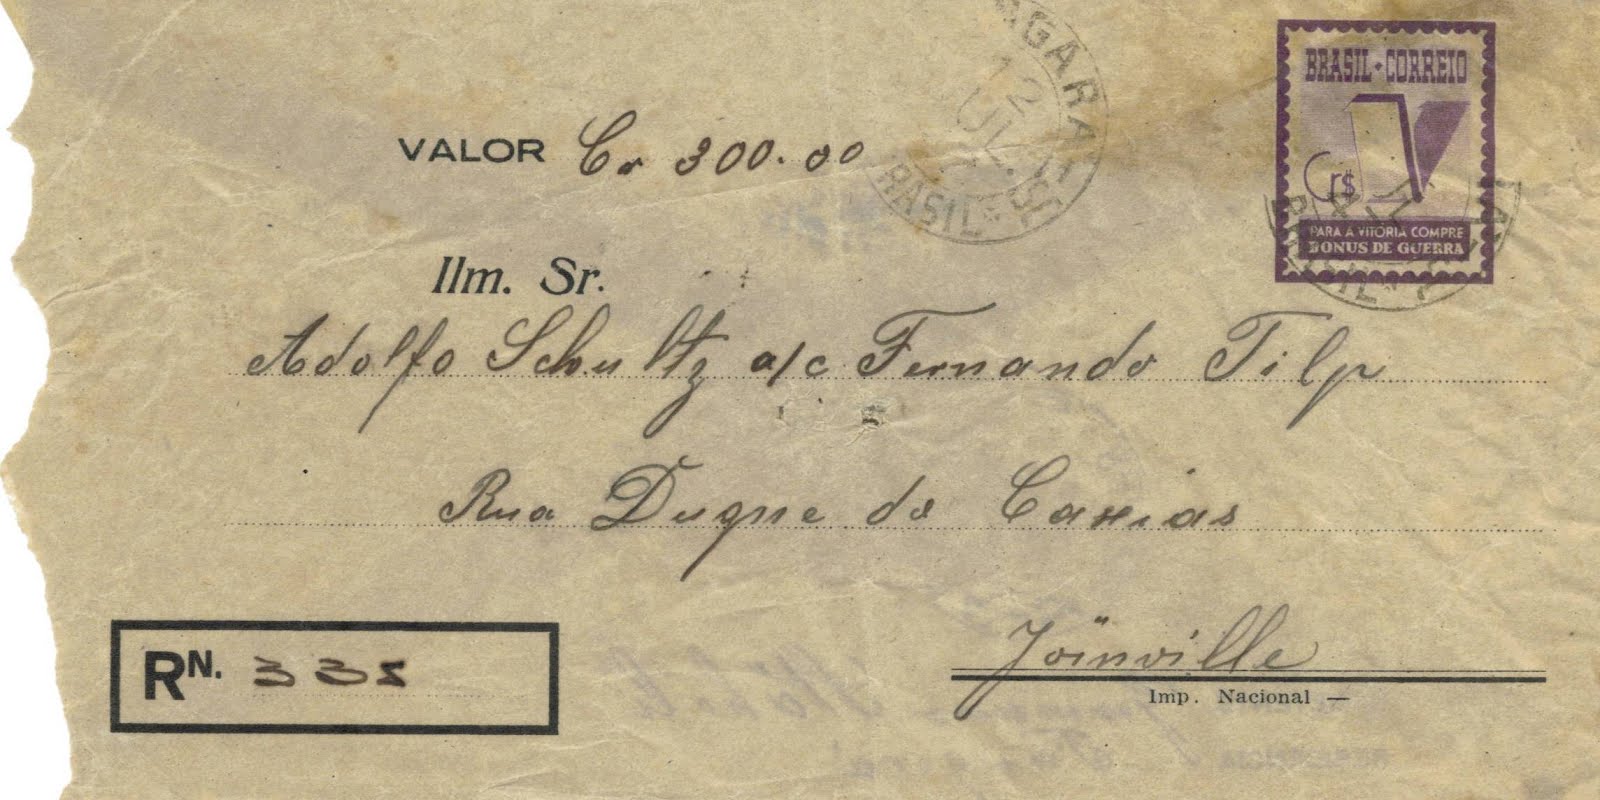 BRASIL · CORREIO
Cr$
PARA A VITÓRIA COMPRE
BONUS DE GUERRA
VALOR Cr 300.00
12
JUL
BRASIL
Ilm. Sr.
Adolfo Schultz a/c Fernando Tilp
Rua Duque de Caxias
Joinville
Imp. Nacional —
RN. 335